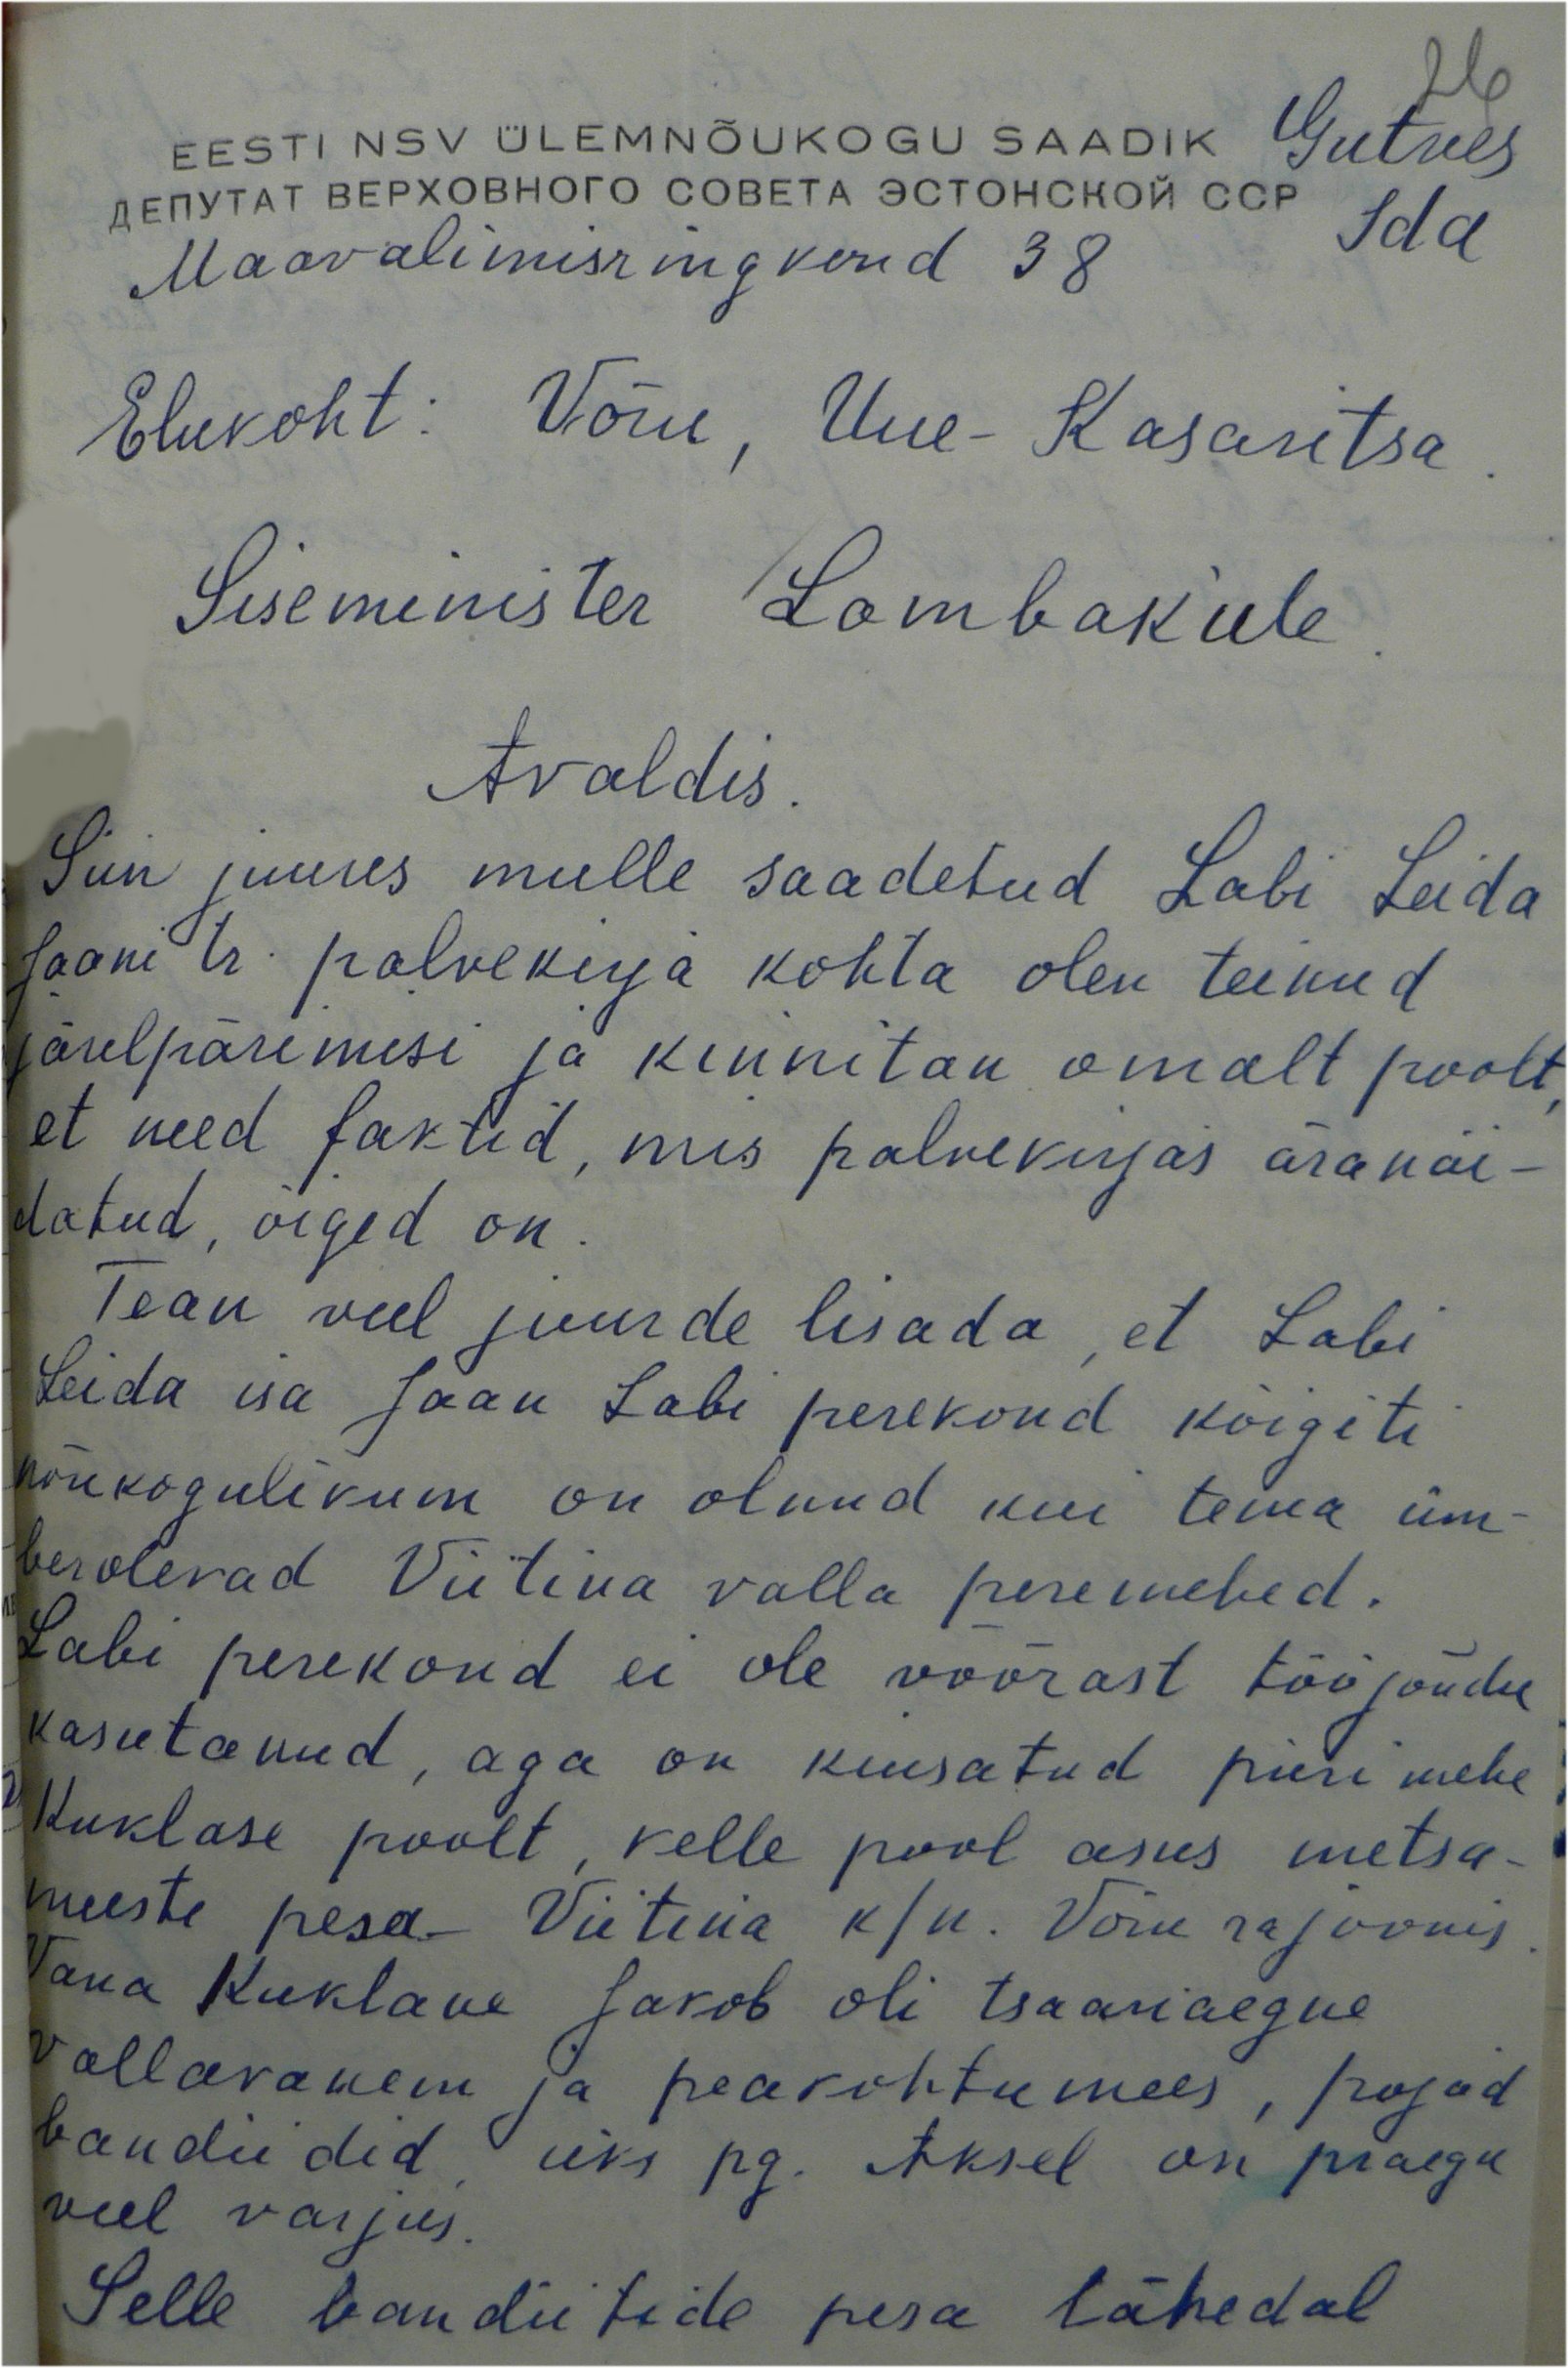 26
EESTI NSV ÜLEMNÕUKOGU SAADIK Gutves
ДЕПУТАТ ВЕРХОВНОГО СОВЕТА ЭСТОНСКОЙ ССР Ida
Maavalimisringkond 38
Elukoht: Võru, Uue-Kasaritsa.
Siseminister Lombak'ule.
Avaldis.
Siin juures mulle saadetud Labi Leida
Jaani tr. palvekirja kohta olen teinud
järelpärimisi ja kinnitan omalt poolt,
et need faktid, mis palvekirjas äranäi-
datud, õiged on.
Tean veel juurde lisada, et Labi
Leida isa Jaan Labi perekond kõigiti
nõukogulikum on olnud kui tema üm-
berolevad Viitina valla peremehed.
Labi perekond ei ole võõrast tööjõudu
kasutanud, aga on kiusatud piirimehe
Kuklase poolt, kelle pool asus metsa-
meeste pesa - Viitina k/n. Võru rajoonis.
Vana Kuklane Jakob oli tsaariaegne
vallavanem ja peakohtumees, pojad
bandiidid, üks pg. Aksel on praegu
veel varjus.
Selle bandiitide pesa lähedal